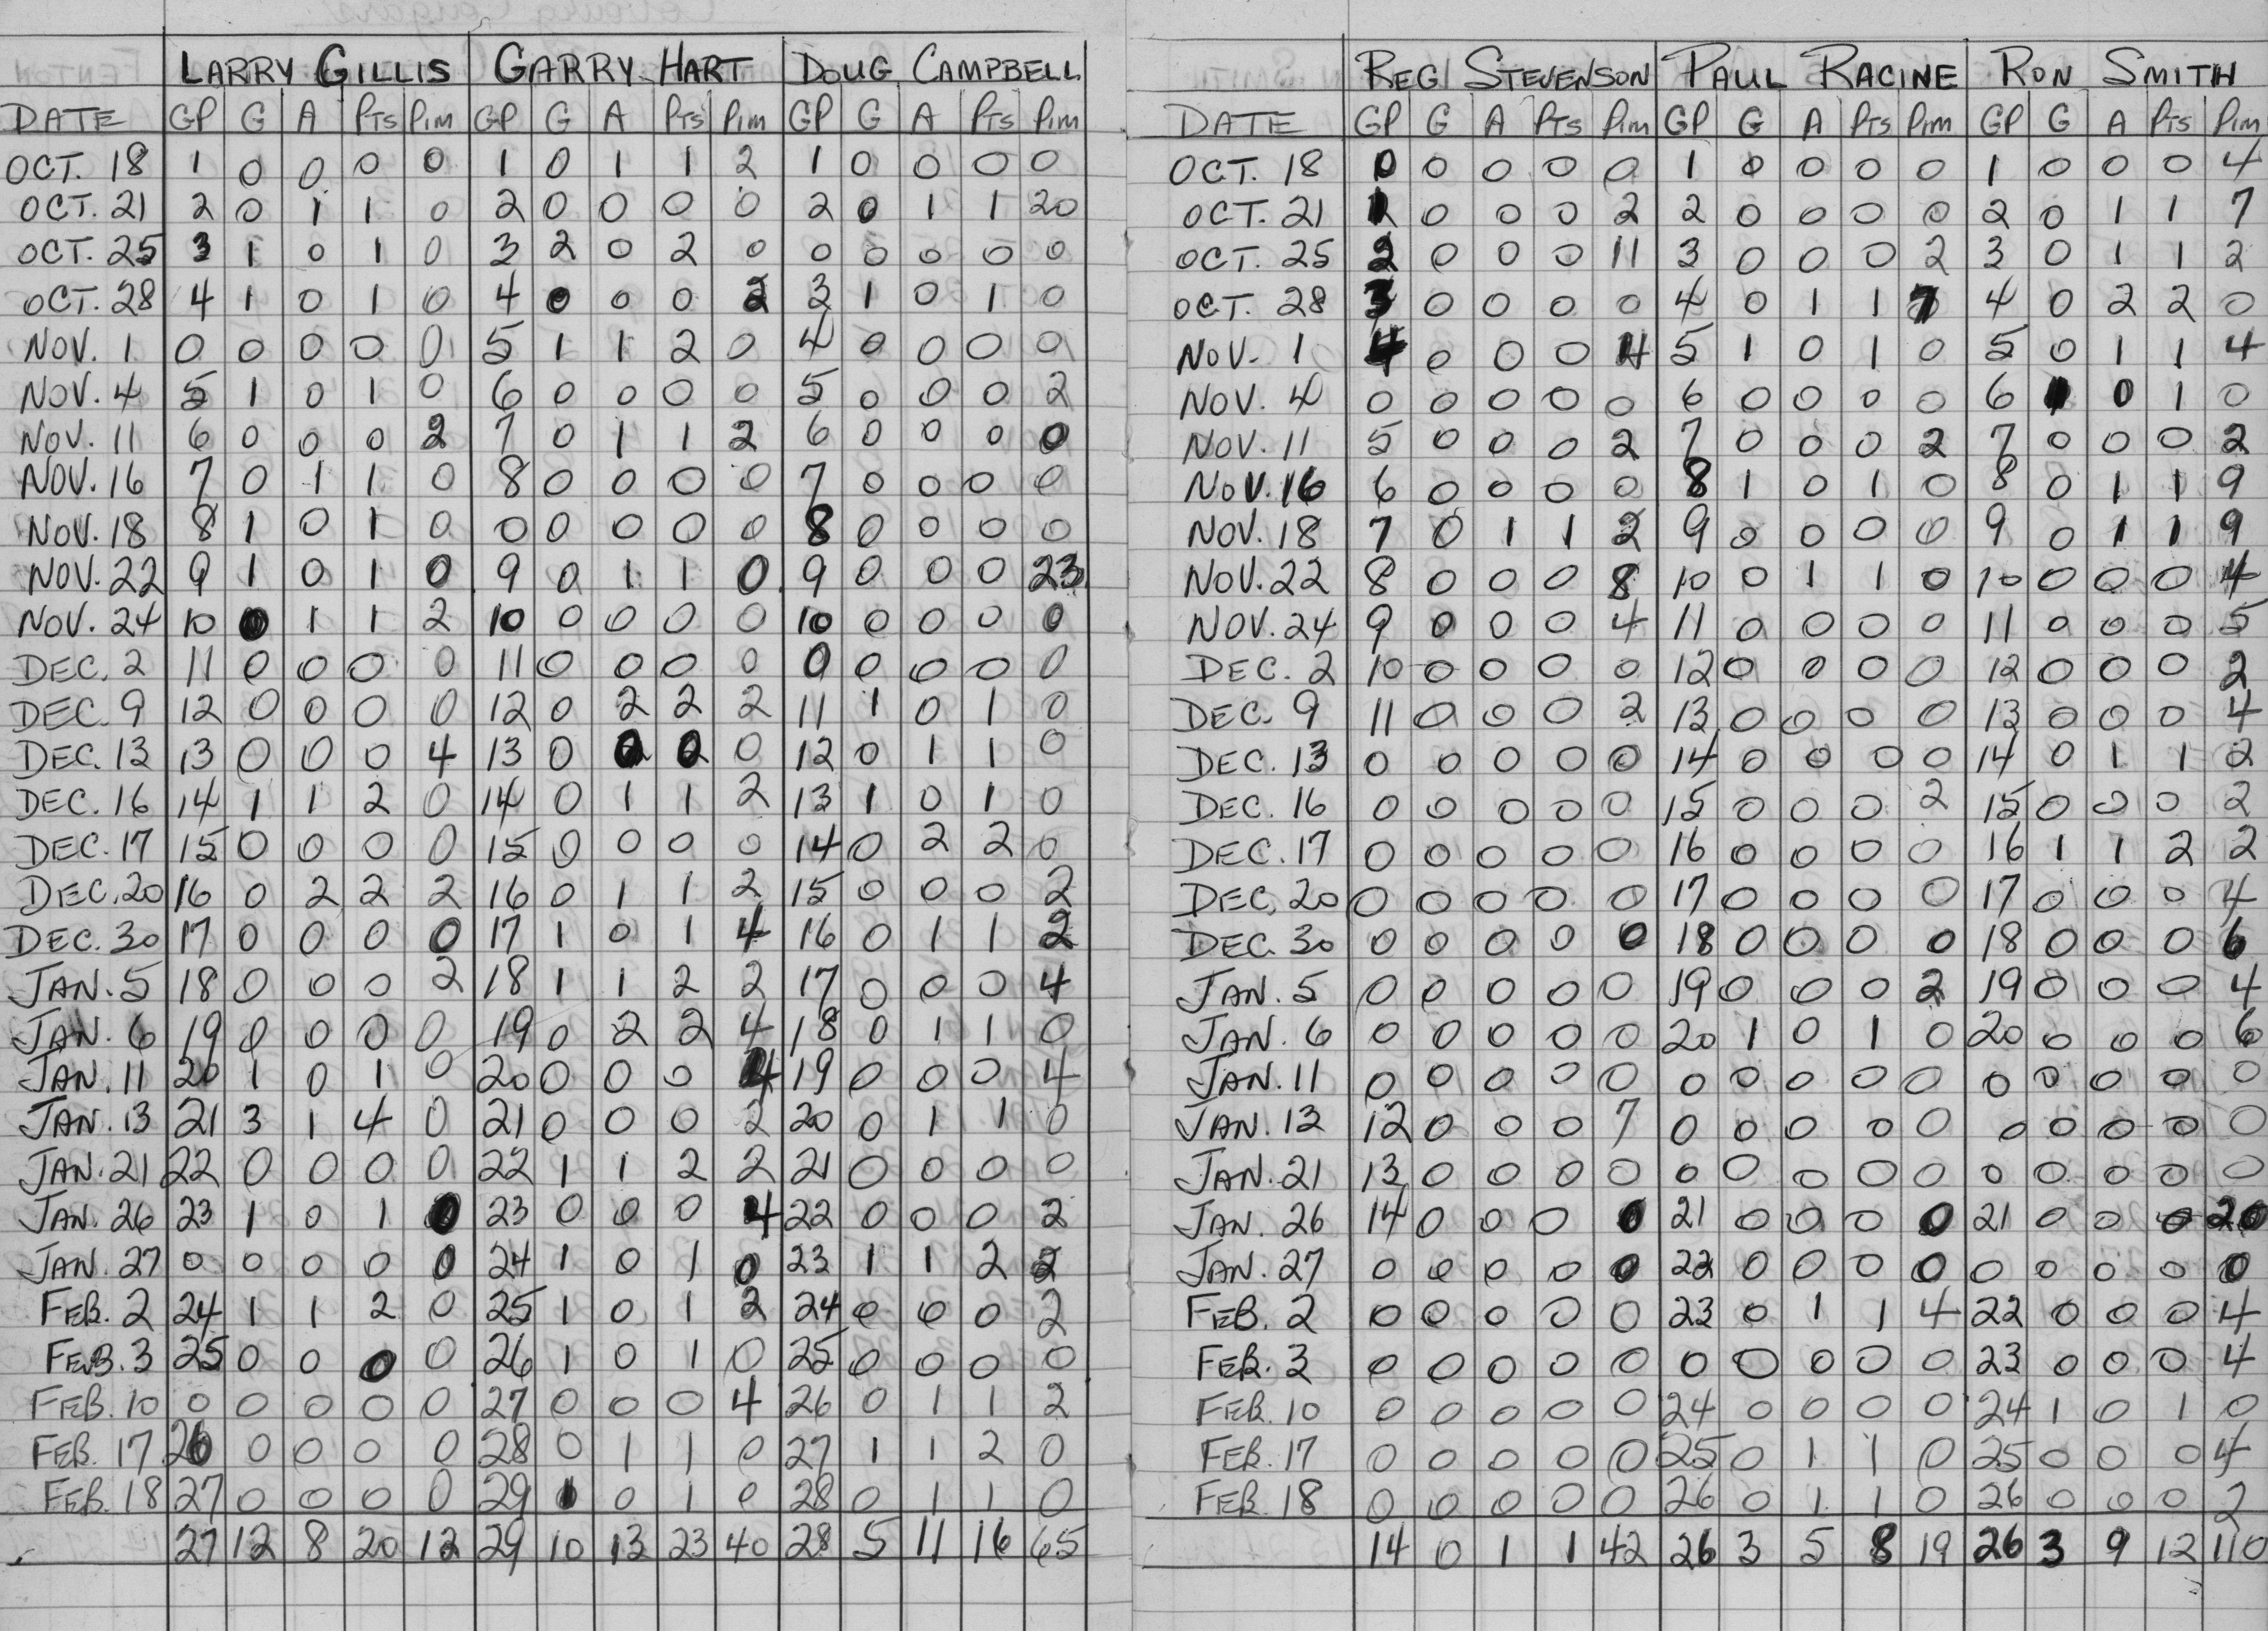 LARRY GILLIS GARRY HART DOUG CAMPBELL
DATE GP G A Pts Pim GP G A Pts Pim GP G A Pts Pim
OCT. 18 1 0 0 0 0 1 0 1 1 2 1 0 0 0 0
OCT. 21 2 0 1 1 0 2 0 0 0 0 2 0 1 1 20
OCT. 25 3 1 0 1 0 3 2 0 2 0 0 0 0 0 0
OCT. 28 4 1 0 1 0 4 0 0 0 2 3 1 0 1 0
NOV. 1 0 0 0 0 0 5 1 1 2 0 4 0 0 0 0
NOV. 4 5 1 0 1 0 6 0 0 0 0 5 0 0 0 2
NOV. 11 6 0 0 0 2 7 0 1 1 2 6 0 0 0 0
NOV. 16 7 0 1 1 0 8 0 0 0 0 7 0 0 0 0
NOV. 18 8 1 0 1 0 0 0 0 0 0 8 0 0 0 0
NOV. 22 9 1 0 1 0 9 0 1 1 0 9 0 0 0 23
NOV. 24 10 0 1 1 2 10 0 0 0 0 10 0 0 0 0
DEC. 2 11 0 0 0 0 11 0 0 0 0 0 0 0 0 0
DEC. 9 12 0 0 0 0 12 0 2 2 2 11 1 0 1 0
DEC. 13 13 0 0 0 4 13 0 0 0 0 12 0 1 1 0
DEC. 16 14 1 1 2 0 14 0 1 1 2 13 1 0 1 0
DEC. 17 15 0 0 0 0 15 0 0 0 0 14 0 2 2 0
DEC. 20 16 0 2 2 2 16 0 1 1 2 15 0 0 0 2
DEC. 30 17 0 0 0 0 17 1 0 1 4 16 0 1 1 2
JAN. 5 18 0 0 0 2 18 1 1 2 2 17 0 0 0 4
JAN. 6 19 0 0 0 0 19 0 2 2 4 18 0 1 1 0
JAN. 11 20 1 0 1 0 20 0 0 0 4 19 0 0 0 4
JAN. 13 21 3 1 4 0 21 0 0 0 2 20 0 1 1 0
JAN. 21 22 0 0 0 0 22 1 1 2 2 21 0 0 0 0
JAN. 26 23 1 0 1 0 23 0 0 0 4 22 0 0 0 2
JAN. 27 0 0 0 0 0 24 1 0 1 0 23 1 1 2 2
FEB. 2 24 1 1 2 0 25 1 0 1 2 24 0 0 0 2
FEB. 3 25 0 0 0 0 26 1 0 1 0 25 0 0 0 0
FEB. 10 0 0 0 0 0 27 0 0 0 4 26 0 1 1 2
FEB. 17 26 0 0 0 0 28 0 1 1 0 27 1 1 2 0
FEB. 18 27 0 0 0 0 29 1 0 1 0 28 0 1 1 0
27 12 8 20 12 29 10 13 23 40 28 5 11 16 65
REG STEVENSON PAUL RACINE RON SMITH
DATE GP G A Pts Pim GP G A Pts Pim GP G A Pts Pim
OCT. 18 0 0 0 0 0 1 0 0 0 0 1 0 0 0 4
OCT. 21 1 0 0 0 2 2 0 0 0 0 2 0 1 1 7
OCT. 25 2 0 0 0 11 3 0 0 0 2 3 0 1 1 2
OCT. 28 3 0 0 0 0 4 0 1 1 7 4 0 2 2 0
NOV. 1 4 0 0 0 4 5 1 0 1 0 5 0 1 1 4
NOV. 4 0 0 0 0 0 6 0 0 0 0 6 1 0 1 0
NOV. 11 5 0 0 0 2 7 0 0 0 2 7 0 0 0 2
NOV. 16 6 0 0 0 0 8 1 0 1 0 8 0 1 1 9
NOV. 18 7 0 1 1 2 9 0 0 0 0 9 0 1 1 9
NOV. 22 8 0 0 0 8 10 0 1 1 0 10 0 0 0 4
NOV. 24 9 0 0 0 4 11 0 0 0 0 11 0 0 0 5
DEC. 2 10 0 0 0 0 12 0 0 0 0 12 0 0 0 2
DEC. 9 11 0 0 0 2 13 0 0 0 0 13 0 0 0 4
DEC. 13 0 0 0 0 0 14 0 0 0 0 14 0 1 1 2
DEC. 16 0 0 0 0 0 15 0 0 0 2 15 0 0 0 2
DEC. 17 0 0 0 0 0 16 0 0 0 0 16 1 1 2 2
DEC. 20 0 0 0 0 0 17 0 0 0 0 17 0 0 0 4
DEC. 30 0 0 0 0 0 18 0 0 0 0 18 0 0 0 6
JAN. 5 0 0 0 0 0 19 0 0 0 2 19 0 0 0 4
JAN. 6 0 0 0 0 0 20 1 0 1 0 20 0 0 0 6
JAN. 11 0 0 0 0 0 0 0 0 0 0 0 0 0 0 0
JAN. 13 12 0 0 0 7 0 0 0 0 0 0 0 0 0 0
JAN. 21 13 0 0 0 0 0 0 0 0 0 0 0 0 0 0
JAN. 26 14 0 0 0 0 21 0 0 0 0 21 0 0 0 20
JAN. 27 0 0 0 0 0 22 0 0 0 0 0 0 0 0 0
FEB. 2 0 0 0 0 0 23 0 1 1 4 22 0 0 0 4
FEB. 3 0 0 0 0 0 0 0 0 0 0 23 0 0 0 4
FEB. 10 0 0 0 0 0 24 0 0 0 0 24 1 0 1 0
FEB. 17 0 0 0 0 0 25 0 1 1 0 25 0 0 0 4
FEB. 18 0 0 0 0 0 26 0 1 1 0 26 0 0 0 2
14 0 1 1 42 26 3 5 8 19 26 3 9 12 110